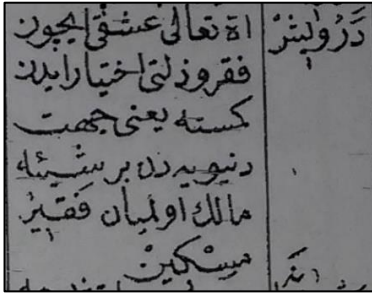 دَرْوِيشْ
الله تعالى عشقى ايچون
فقر و ذلتى اختيار ايدن
كمسنه يعنى جهت
دنيويه دن بر شيئه
مالك اولميان فقيرْ
مسكينْ